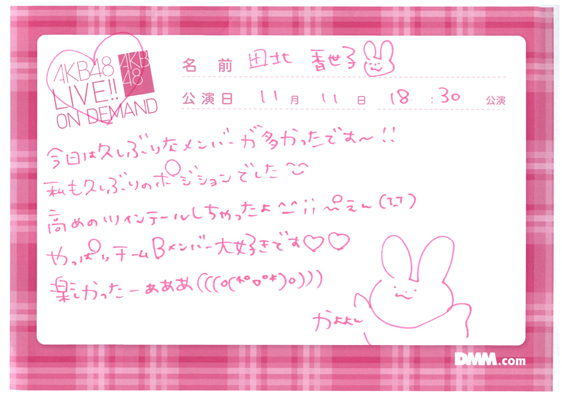 AKB48
LIVE!!
ON DEMAND
AKB
48
名前 田北 香世子
公演日 11月11日 18:30 公演
今日は久しぶりなメンバーが多かったです〜!!
私も久しぶりのポジションでした^^
高めのツインテールしちゃったよ^^;; ぴえん(TT)
やっぱりチームBメンバー大好きです♡♡
楽しかったーぁぁぁ(((o(*°▽°*)o)))
かよよん
DMM.com